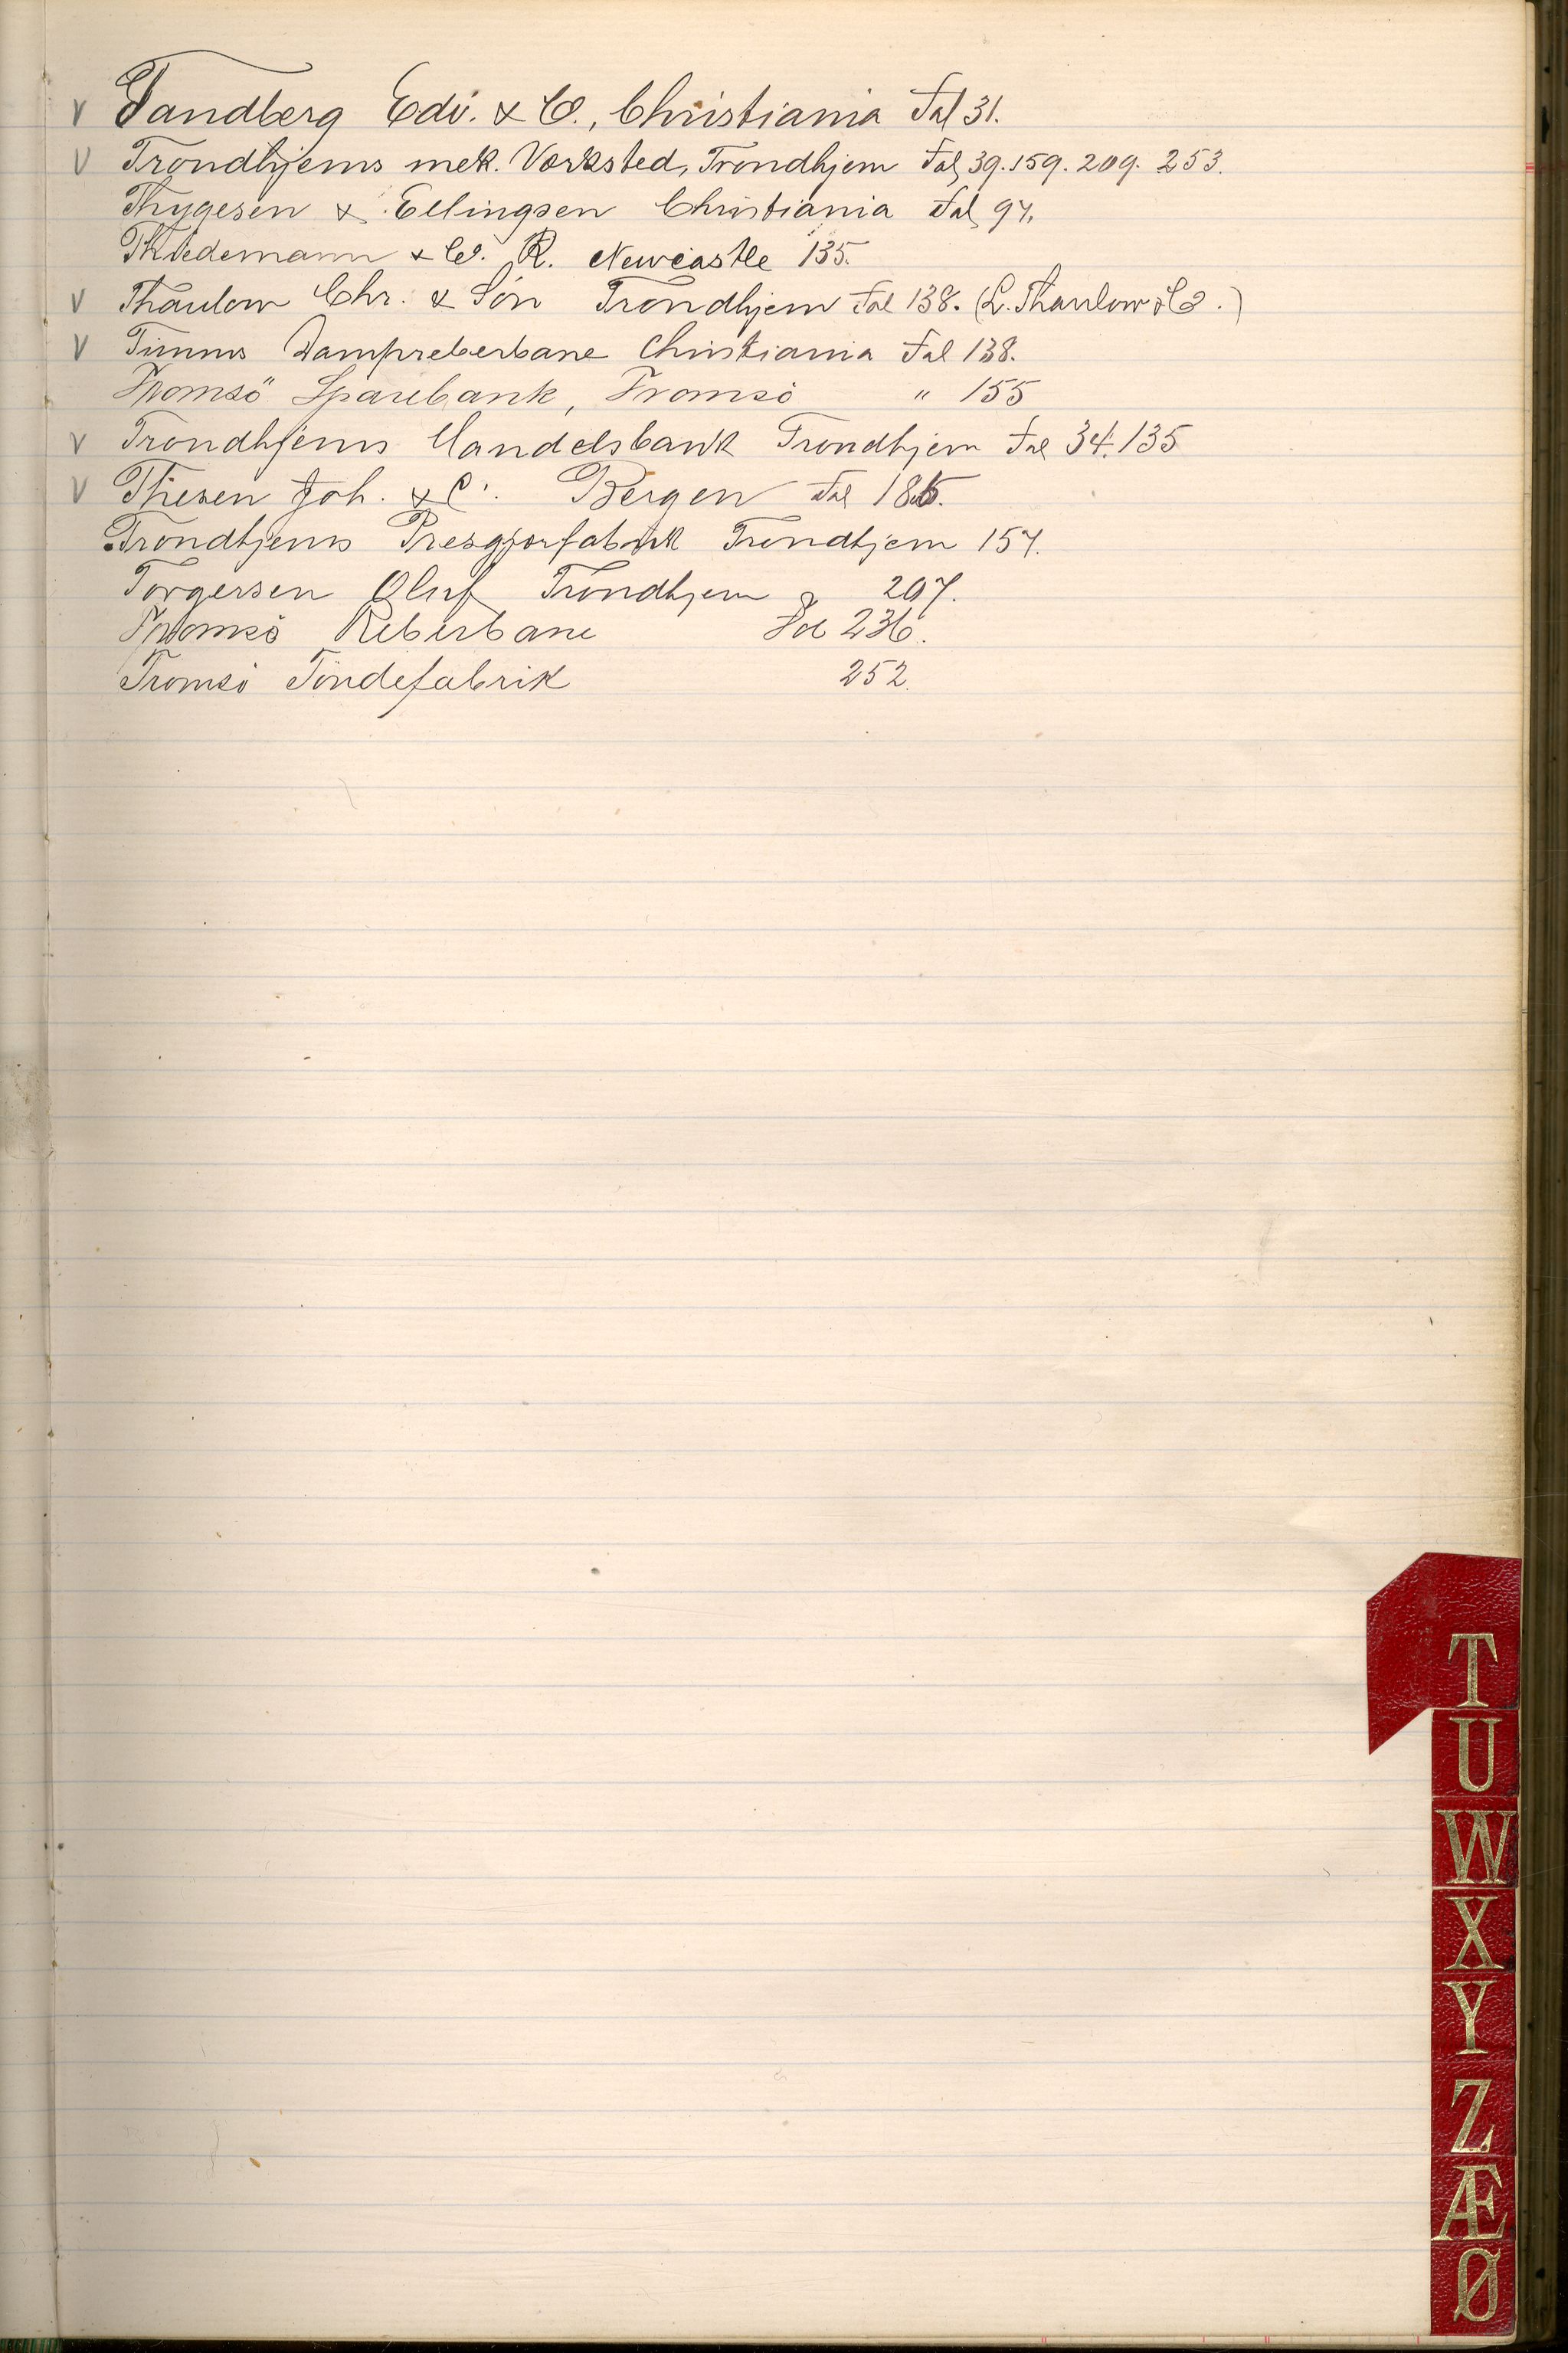 V Tandberg Edv. & Co., Christiania Fol 31.
V Trondhjems mek. Værksted, Trondhjem Fol 39. 159. 209. 253.
Thygesen & Ellingsen Christiania Fol 97.
Thiedemann & Co. R. Newcastle 135.
V Thaulow Chr. & Sön Trondhjem Fol 138. (L. Thaulow & Co.)
V Timms Dampreberbane Christiania Fol 138.
Tromsö Sparebank, Tromsö " 155
V Trondhjems Handelsbank Trondhjem Fol 34. 135
V Thesen Joh. & C. Bergen Fol 185.
Trondhjems Presgjærfabrik Trondhjem 157.
Torgersen Oluf Trondhjem 207.
Tromsö Reberbane Fol 236.
Tromsö Töndefabrik 252.
T
U
W
X
Y
Z
Æ
Ø